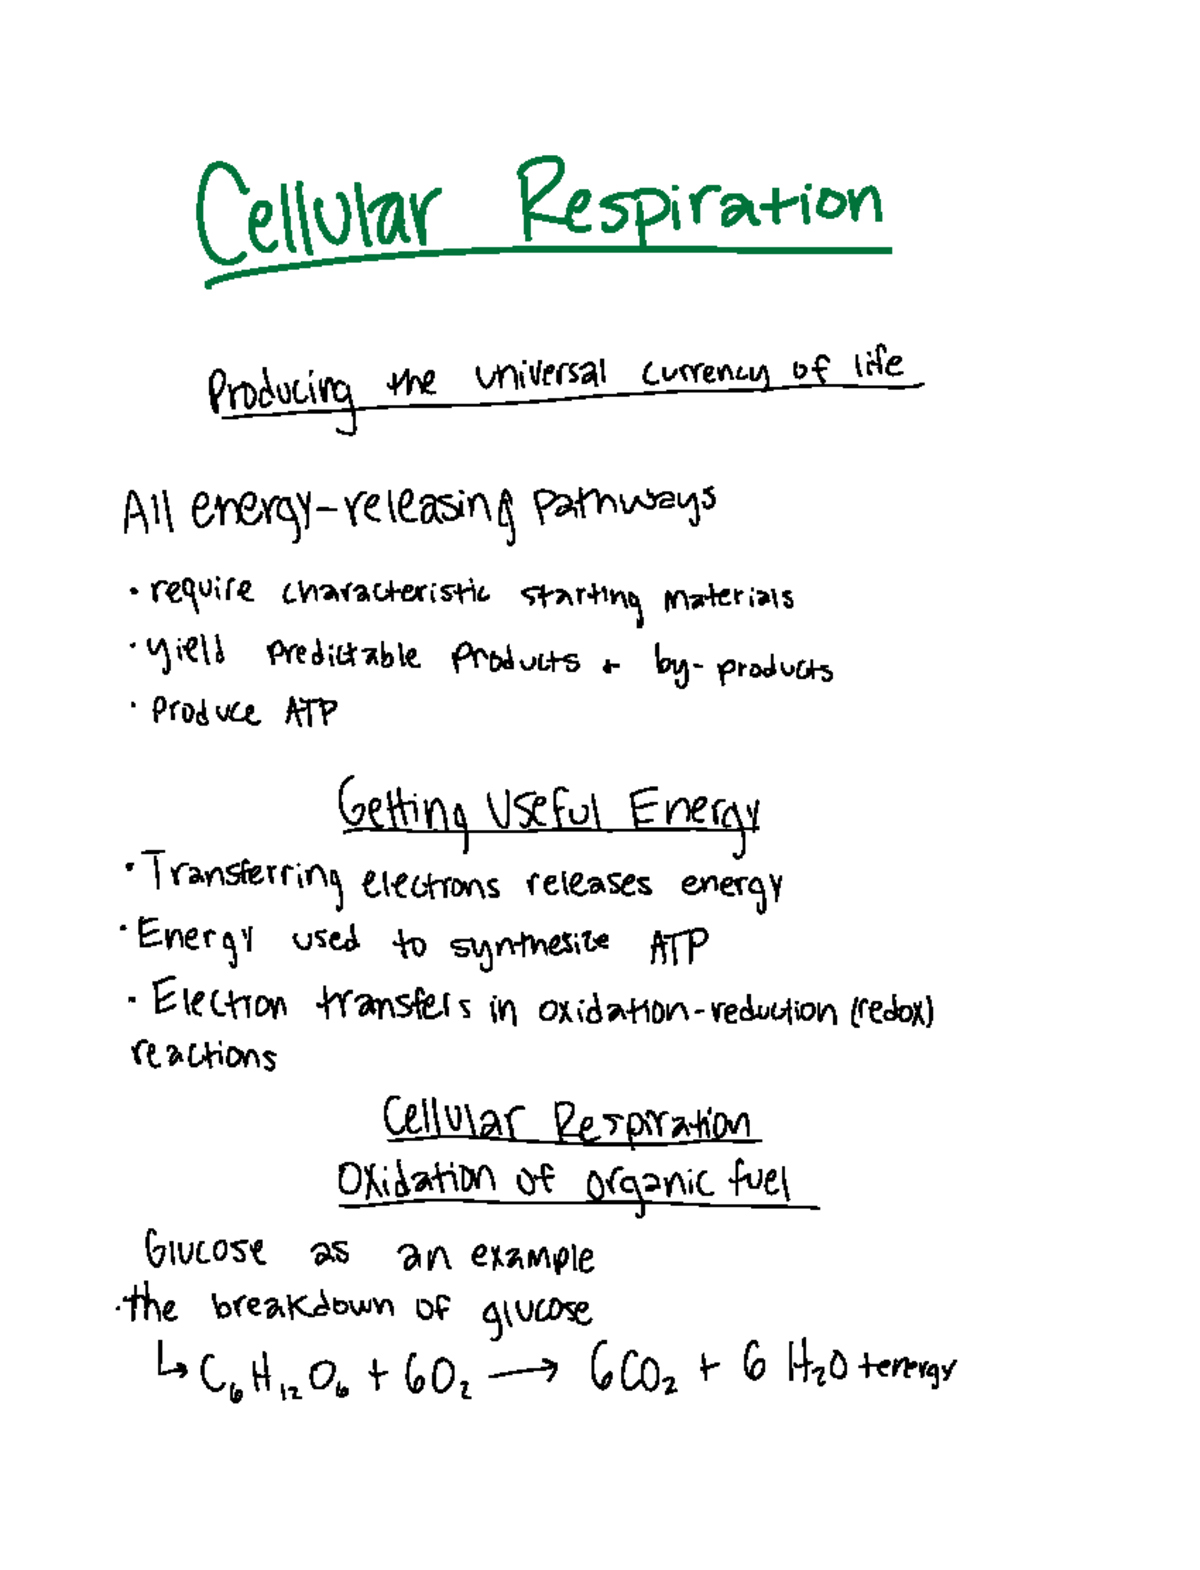 Cellular Respiration
Producing the universal currency of life
All energy-releasing pathways
• require characteristic starting materials
• yield predictable products + by-products
• produce ATP
Getting Useful Energy
• Transferring electrons releases energy
• Energy used to synthesize ATP
• Electron transfers in oxidation-reduction (redox)
reactions
Cellular Respiration
Oxidation of organic fuel
Glucose as an example
• the breakdown of glucose
↳ C₆H₁₂O₆ + 6O₂ → 6CO₂ + 6 H₂O + energy